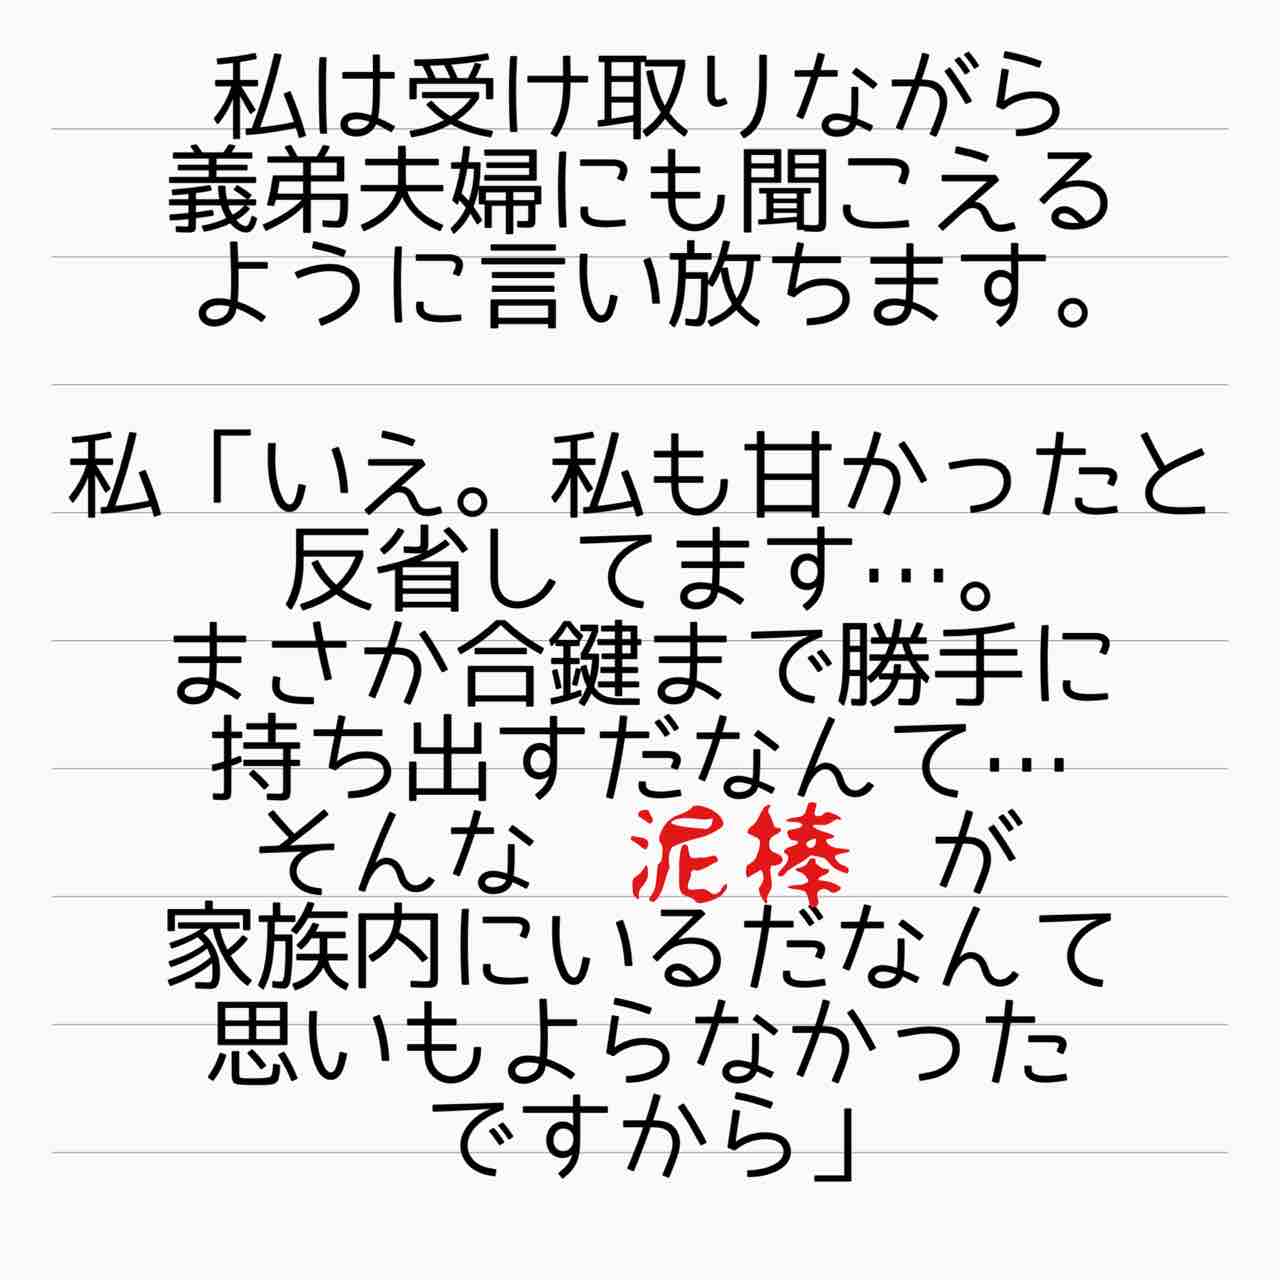 私は受け取りながら
義弟夫婦にも聞こえる
ように言い放ちます。
私「いえ。私も甘かったと
反省してます…。
まさか合鍵まで勝手に
持ち出すだなんて…
そんな 泥棒 が
家族内にいるだなんて
思いもよらなかった
ですから」